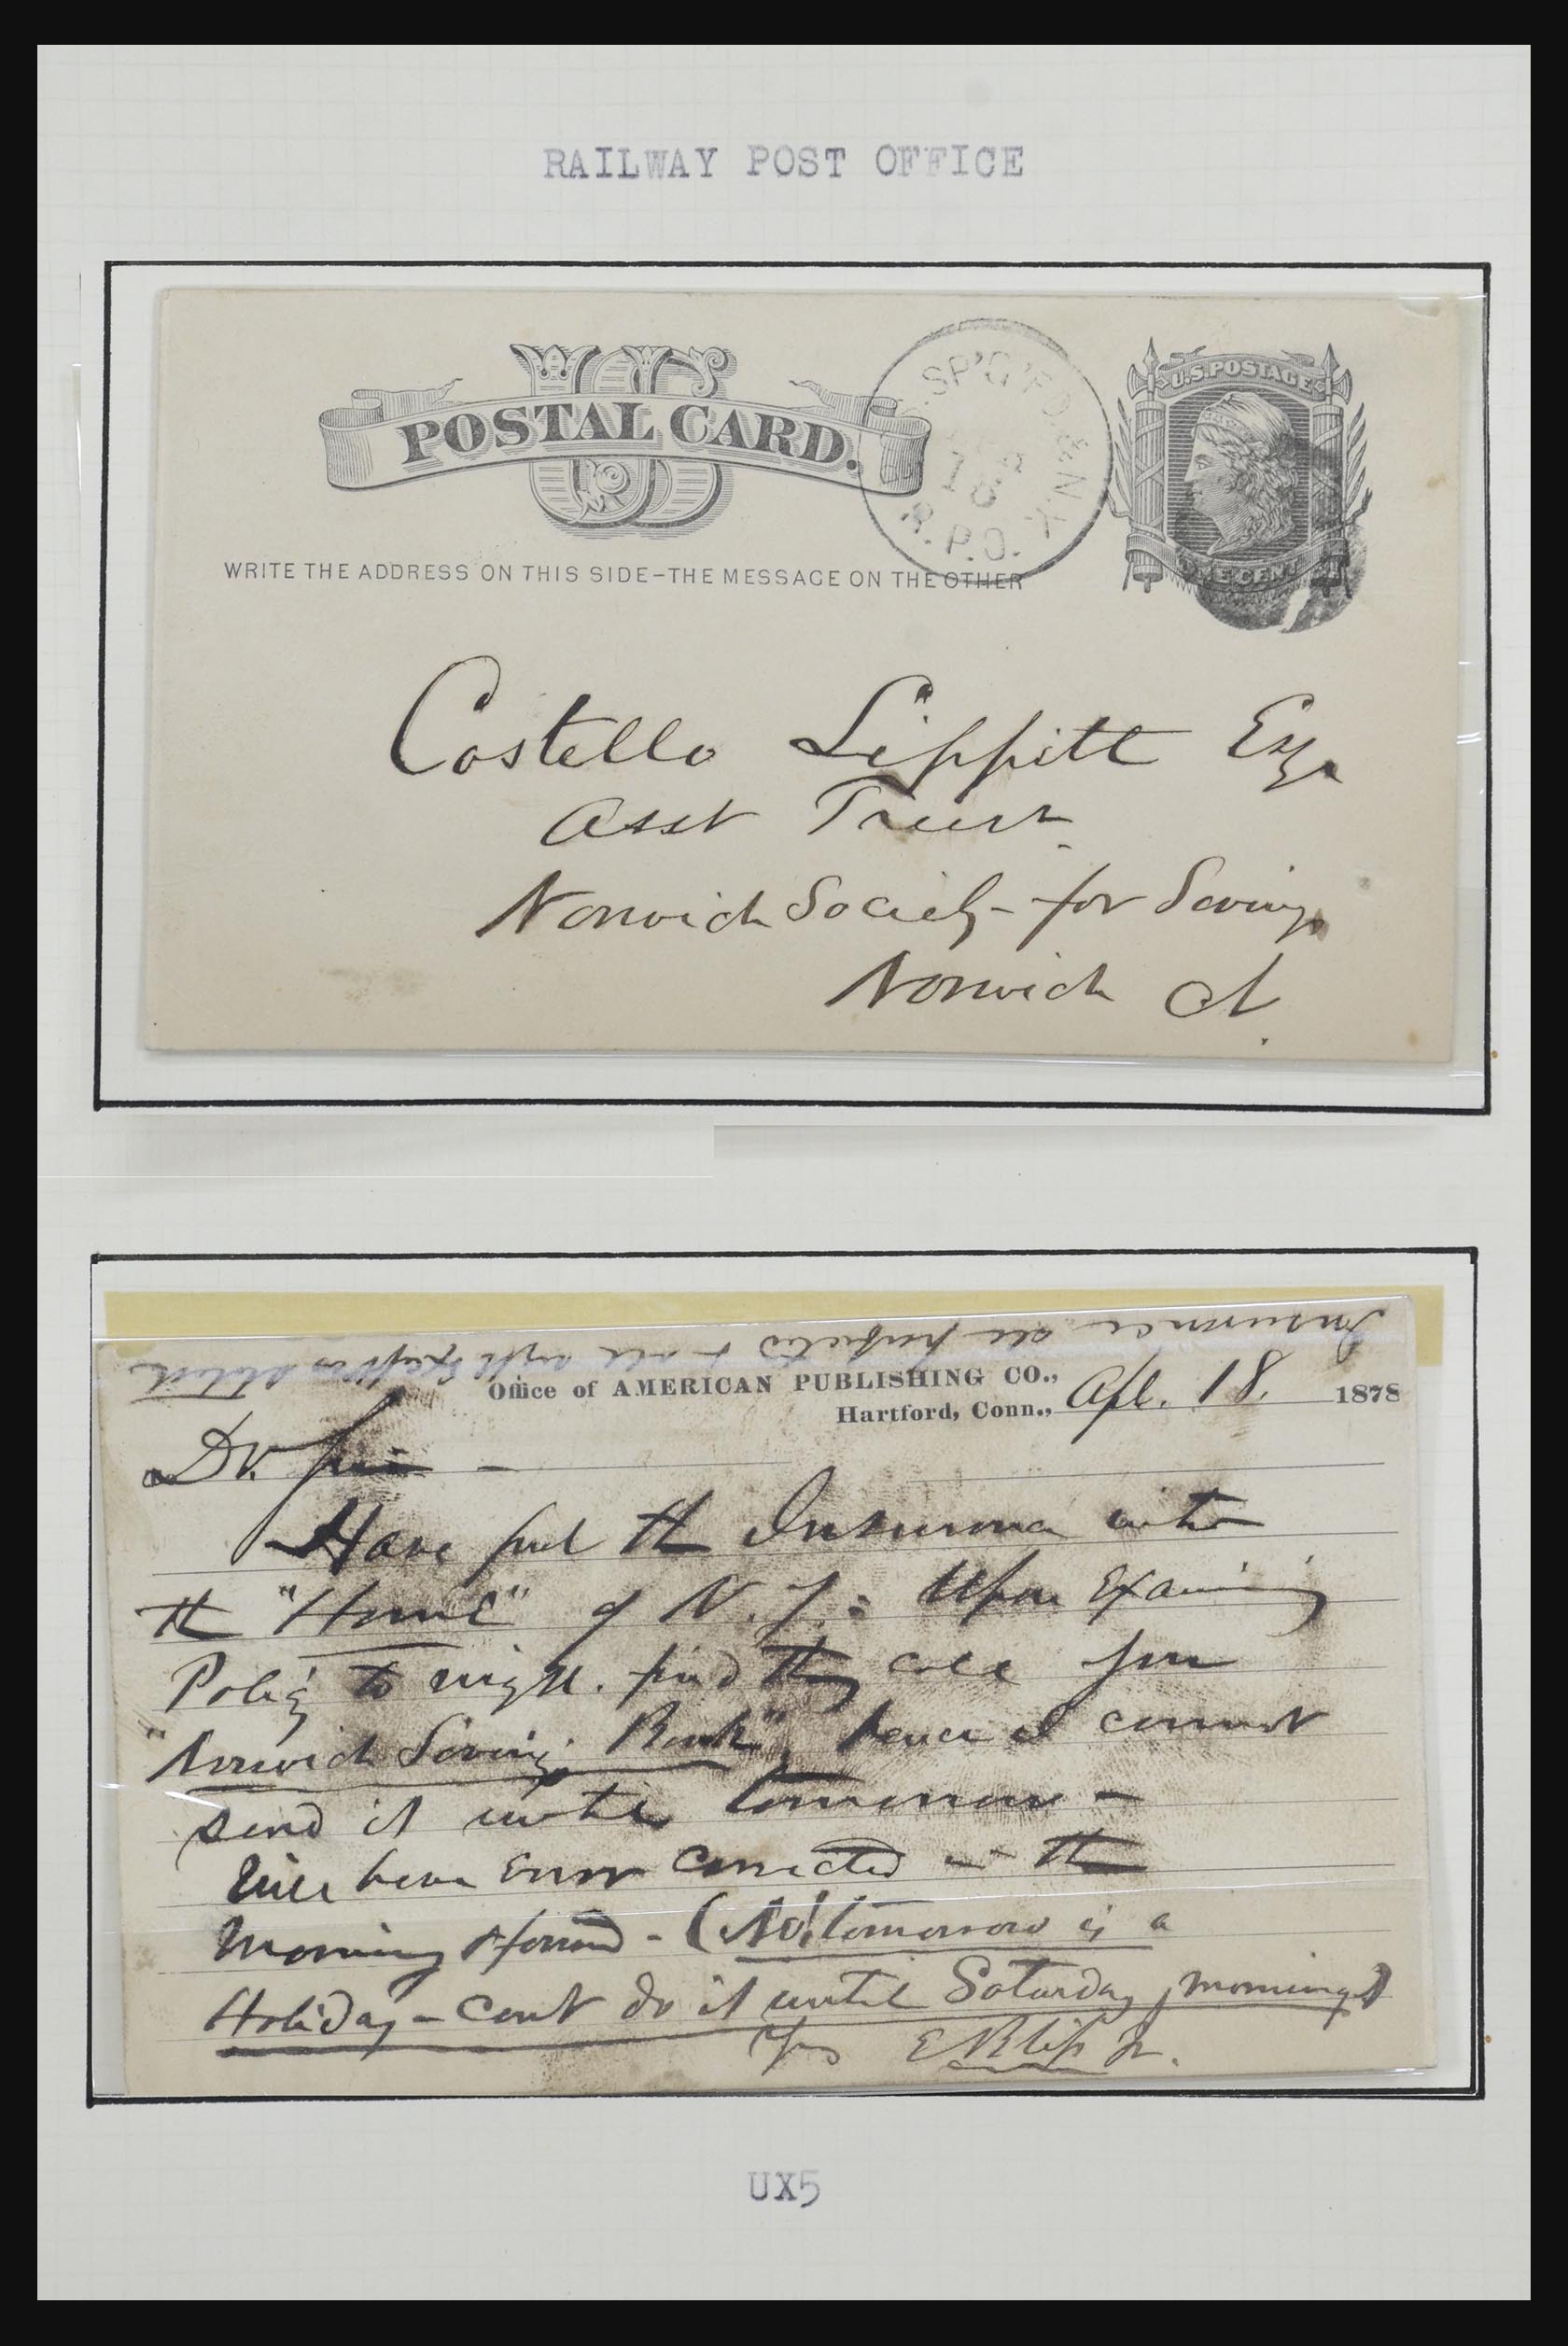 RAILWAY POST OFFICE
US
POSTAL CARD.
SP'G'F'D. & N.Y.
18
R.P.O.
U.S. POSTAGE
ONE CENT
WRITE THE ADDRESS ON THIS SIDE-THE MESSAGE ON THE OTHER
Costello Lippitt Esq.
Asst Treasr
Norwich Society for Savings
Norwich Ct.
Insurance all perfected & all right except as stated
Office of AMERICAN PUBLISHING CO.,
Hartford, Conn., Apl. 18. 1878
Dr. Sir -
Have put the Insurance into
the "Home" of N.Y. Upon Examining
Policy to night. find they call you
"Norwich Savings Bank", hence I cannot
send it until tomorrow -
Will have Error corrected in the
Morning & forwd - (No! tomorrow is a
Holiday - cant do it until Saturday morning)
Yrs E Bliss Jr.
UX5